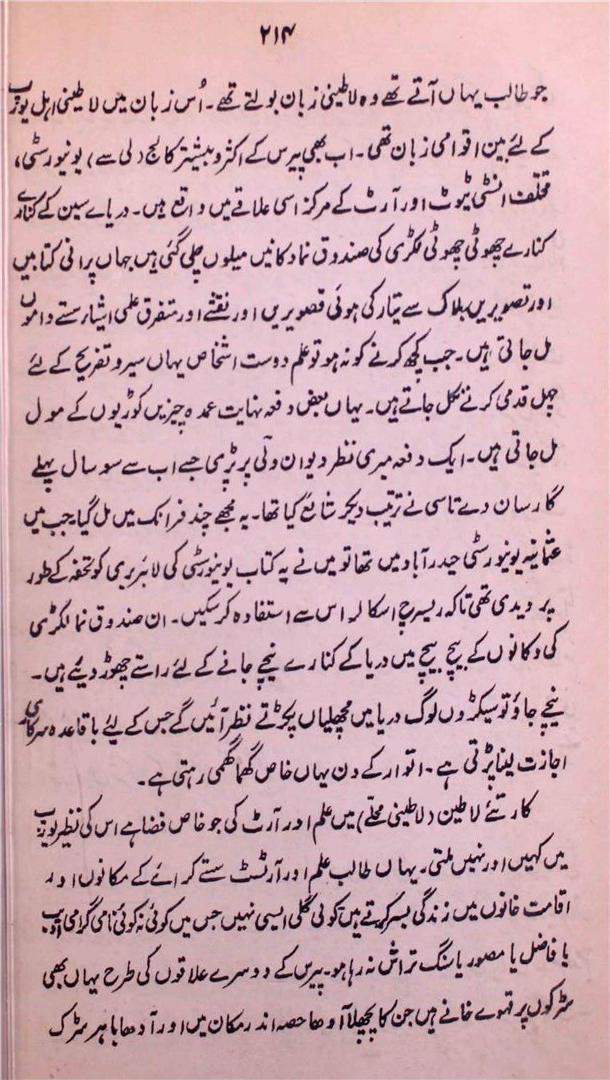 ۲۱۴
جو طالب یہاں آتے تھے وہ لاطینی زبان بولتے تھے۔ اُس زبان میں لاطینی اہل یورپ
کے لئے بین اقوامی زبان تھی۔ اب بھی پیرس کے اکثر و بیشتر کالج (لی سے) یونیورسٹی،
مختلف انسٹی ٹیوٹ اور آرٹ کے مرکز اسی علاقے میں واقع ہیں۔ دریاے سین کے کنارے
کنارے چھوٹی چھوٹی لکڑی کی صندوق نما دکانیں میلوں چلی گئی ہیں جہاں پرانی کتابیں
اور تصویریں بلاک سے تیار کی ہوئی تصویریں اور نقشے اور متفرق علمی اشیا سستے داموں
مل جاتی ہیں۔ جب کچھ کرنے کو نہ ہو تو علم دوست اشخاص یہاں سیر و تفریح کے لئے
چہل قدمی کرنے نکل جاتے ہیں۔ یہاں بعض دفعہ نہایت عمدہ چیزیں کوڑیوں کے مول
مل جاتی ہیں۔ ایک دفعہ میری نظر دیوان ولی پر پڑی جسے اب سے سو سال پہلے
گارساں دے تاسی نے ترتیب دیکر شائع کیا تھا۔ یہ مجھے چند فرانک میں مل گیا۔ جب میں
عثمانیہ یونیورسٹی حیدرآباد میں تھا تو میں نے یہ کتاب یونیورسٹی کی لائبریری کو تحفہ کے طور
پر دیدی تھی تاکہ ریسرچ اسکالر اس سے استفادہ کر سکیں۔ ان صندوق نما لکڑی
کی دکانوں کے بیچ بیچ میں دریا کے کنارے نیچے جانے کے لئے راستے چھوڑ دیئے ہیں۔
نیچے جاؤ تو سیکڑوں لوگ دریا میں مچھلیاں پکڑتے نظر آئیں گے جس کے لئے باقاعدہ سرکاری
اجازت لینا پڑتی ہے۔ اتوار کے دن یہاں خاص گہما گہمی رہتی ہے۔
کارتئے لاطین (لاطینی محلّے) میں علم اور آرٹ کی جو خاص فضا ہے اس کی نظیر یورپ
میں کہیں اور نہیں ملتی۔ یہاں طالب علم اور آرٹسٹ سستے کرائے کے مکانوں اور
اقامت خانوں میں زندگی بسر کرتے ہیں کوئی گلی ایسی نہیں جس میں کوئی نہ کوئی نامی گرامی ادیب
یا فاضل یا مصور یا سنگ تراش نہ رہا ہو۔ پیرس کے دوسرے علاقوں کی طرح یہاں بھی
سڑکوں پر قہوے خانے ہیں جن کا پچھلا آدھا حصہ اندر مکان میں اور آدھا باہر سڑک